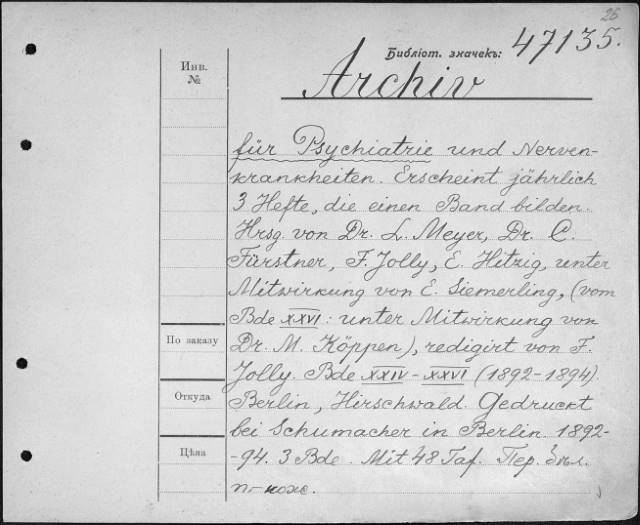 26
Библіот. значекъ: 47135.
Инв.
№
Archiv
für Psychiatrie und Nerven-
krankheiten. Erscheint jährlich
3 Hefte, die einen Band bilden.
Hrsg. von Dr. L. Meyer, Dr. C.
Fürstner, F. Jolly, E. Hitzig, unter
Mitwirkung von E. Siemerling, (vom
Bde XXVI: unter Mitwirkung von
По заказу
Dr. M. Köppen), redigirt von F.
Jolly. Bde XXIV-XXVI (1892-1894).
Откуда
Berlin, Hirschwald. Gedruckt
bei Schumacher in Berlin. 1892-
Цѣна
-94. 3 Bde. Mit 48 Taf. Пер.
п-кож.